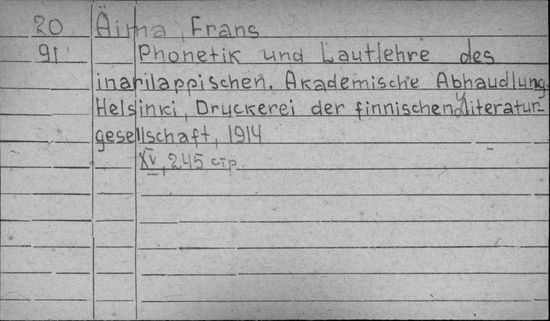 20 Äima, Frans
91 Phonetik und Lautlehre des
inarilappischen. Akademische Abhaudlung.
Helsinki, Druckerei der finnischen Literatur-
gesellschaft, 1914
XV, 245 стр.